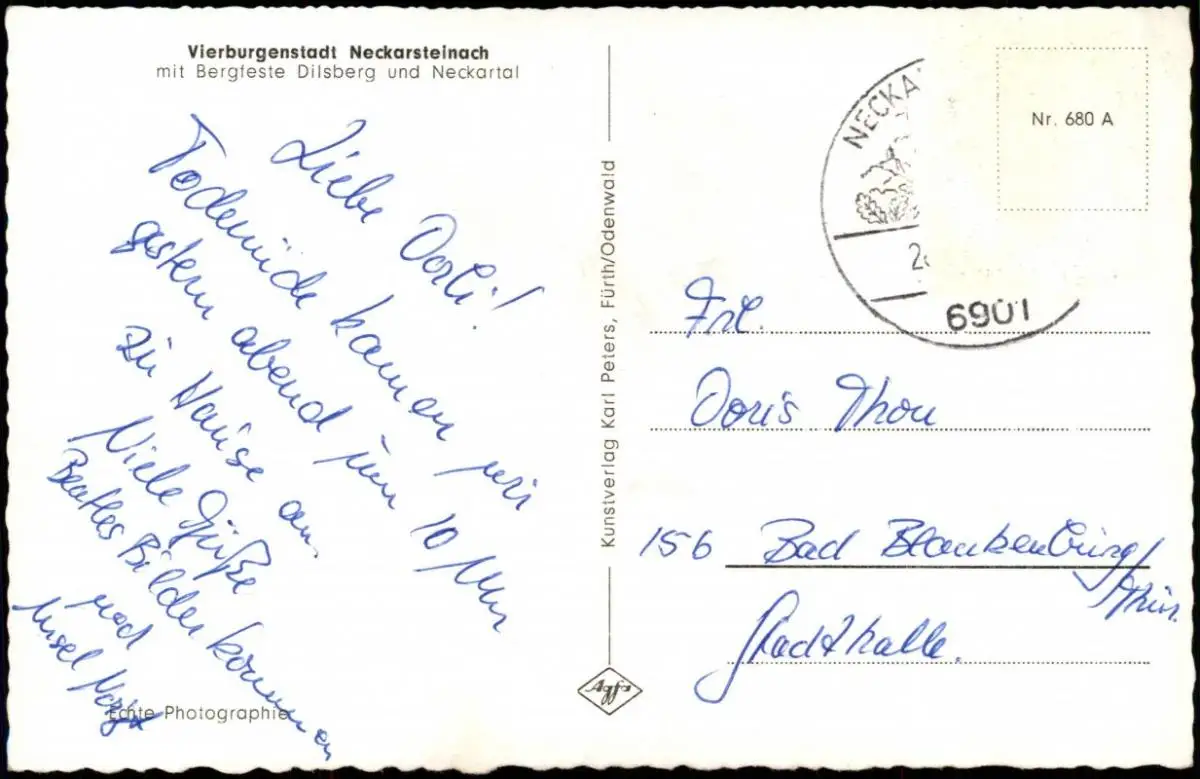 Vierburgenstadt Neckarsteinach
mit Bergfeste Dilsberg und Neckartal
Liebe Dorli!
Todemüde kamen wir
gestern abend um 10 Uhr
zu Hause an.
Viele Grüße
Beatles Bilder kommen
und
Echte Photographie
Kunstverlag Karl Peters, Fürth/Odenwald
Agfa
NECKA
2
6901
Nr. 680 A
Frl.
Doris Thon
156 Bad Blankenburg/
Thür.
Stadthalle.